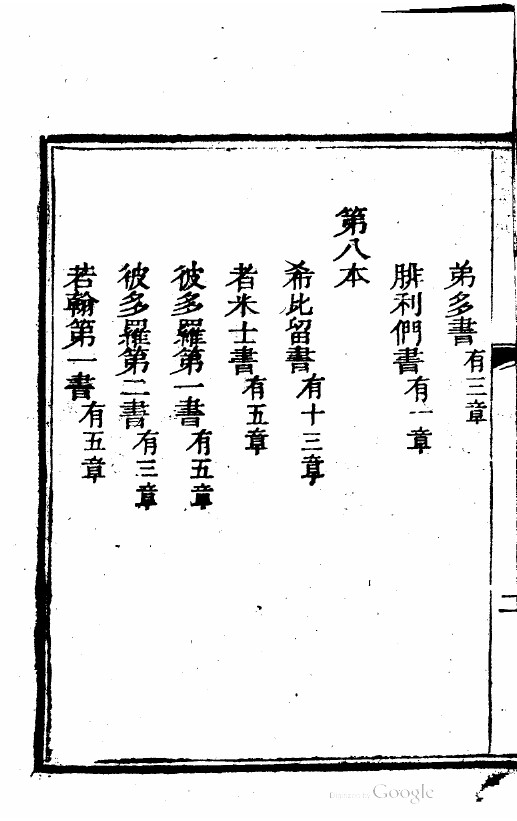 弟多書有三章
腓利們書有一章
第八本
希比留書有十三章
者米士書有五章
彼多羅第一書有五章
彼多羅第二書有三章
若翰第一書有五章
二
Digitized by Google